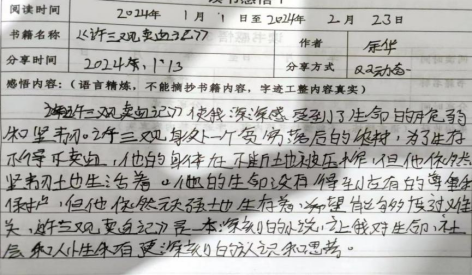 读书感悟
阅读时间 2024年 1月 1日至2024年 2月 23日
书籍名称 《许三观卖血记》 作者 余华
分享时间 2024年,1.13 分享方式 QQ动态
感悟内容:(语言精炼,不能摘抄书籍内容,字迹工整内容真实)
《许三观卖血记》使我深深感受到了生命的脆弱
和坚韧。许三观身处一个贫穷落后的农村,为了生存
不得不卖血,他的身体在不断地被压榨,但他依然
坚韧地生活着。他的生命没有得到应有的尊重和
保护,但他依然顽强地生存着,希望能够渡过难
关,《许三观卖血记》是一本深刻的小说,让我对生命、社
会和人性有更深刻的认识和思考。